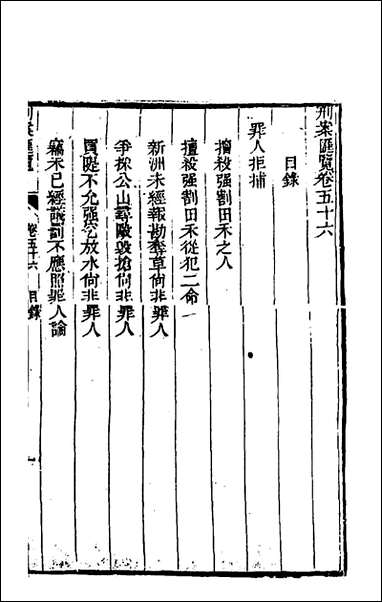 刑案匯覽卷五十六
目錄
罪人拒捕
擅殺強割田禾之人
擅殺強割田禾從犯二命
新洲未經報勘割草尙非罪人
爭採公山尋毆毀搶尙非罪人
買隄不允強乞放水尙非罪人
竊未已經議罰不應照罪人論
刑案匯覽 卷五十六 目錄 一